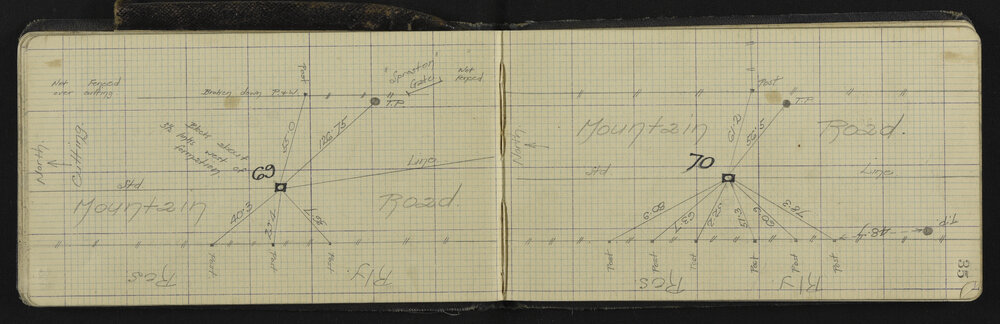 Not Fenced
over cutting
Post
Broken down P.&W.
"Spreyton"
Gates
Not
fenced
T.P.
Block about
5½ lks west of
formation
North
Cutting
55.0
126.75
69
Line
Std
Mountain Road.
40.3
23.4
Post
Post
Post
Res Rly.
Post
T.P.
Mountain Road.
North
55.5
70
Std
Line
60.9
63.7
52.2
51.3
78.3
T.P.
48.4
Post
Post
Post
Post
Post
Post
Res Rly.
35